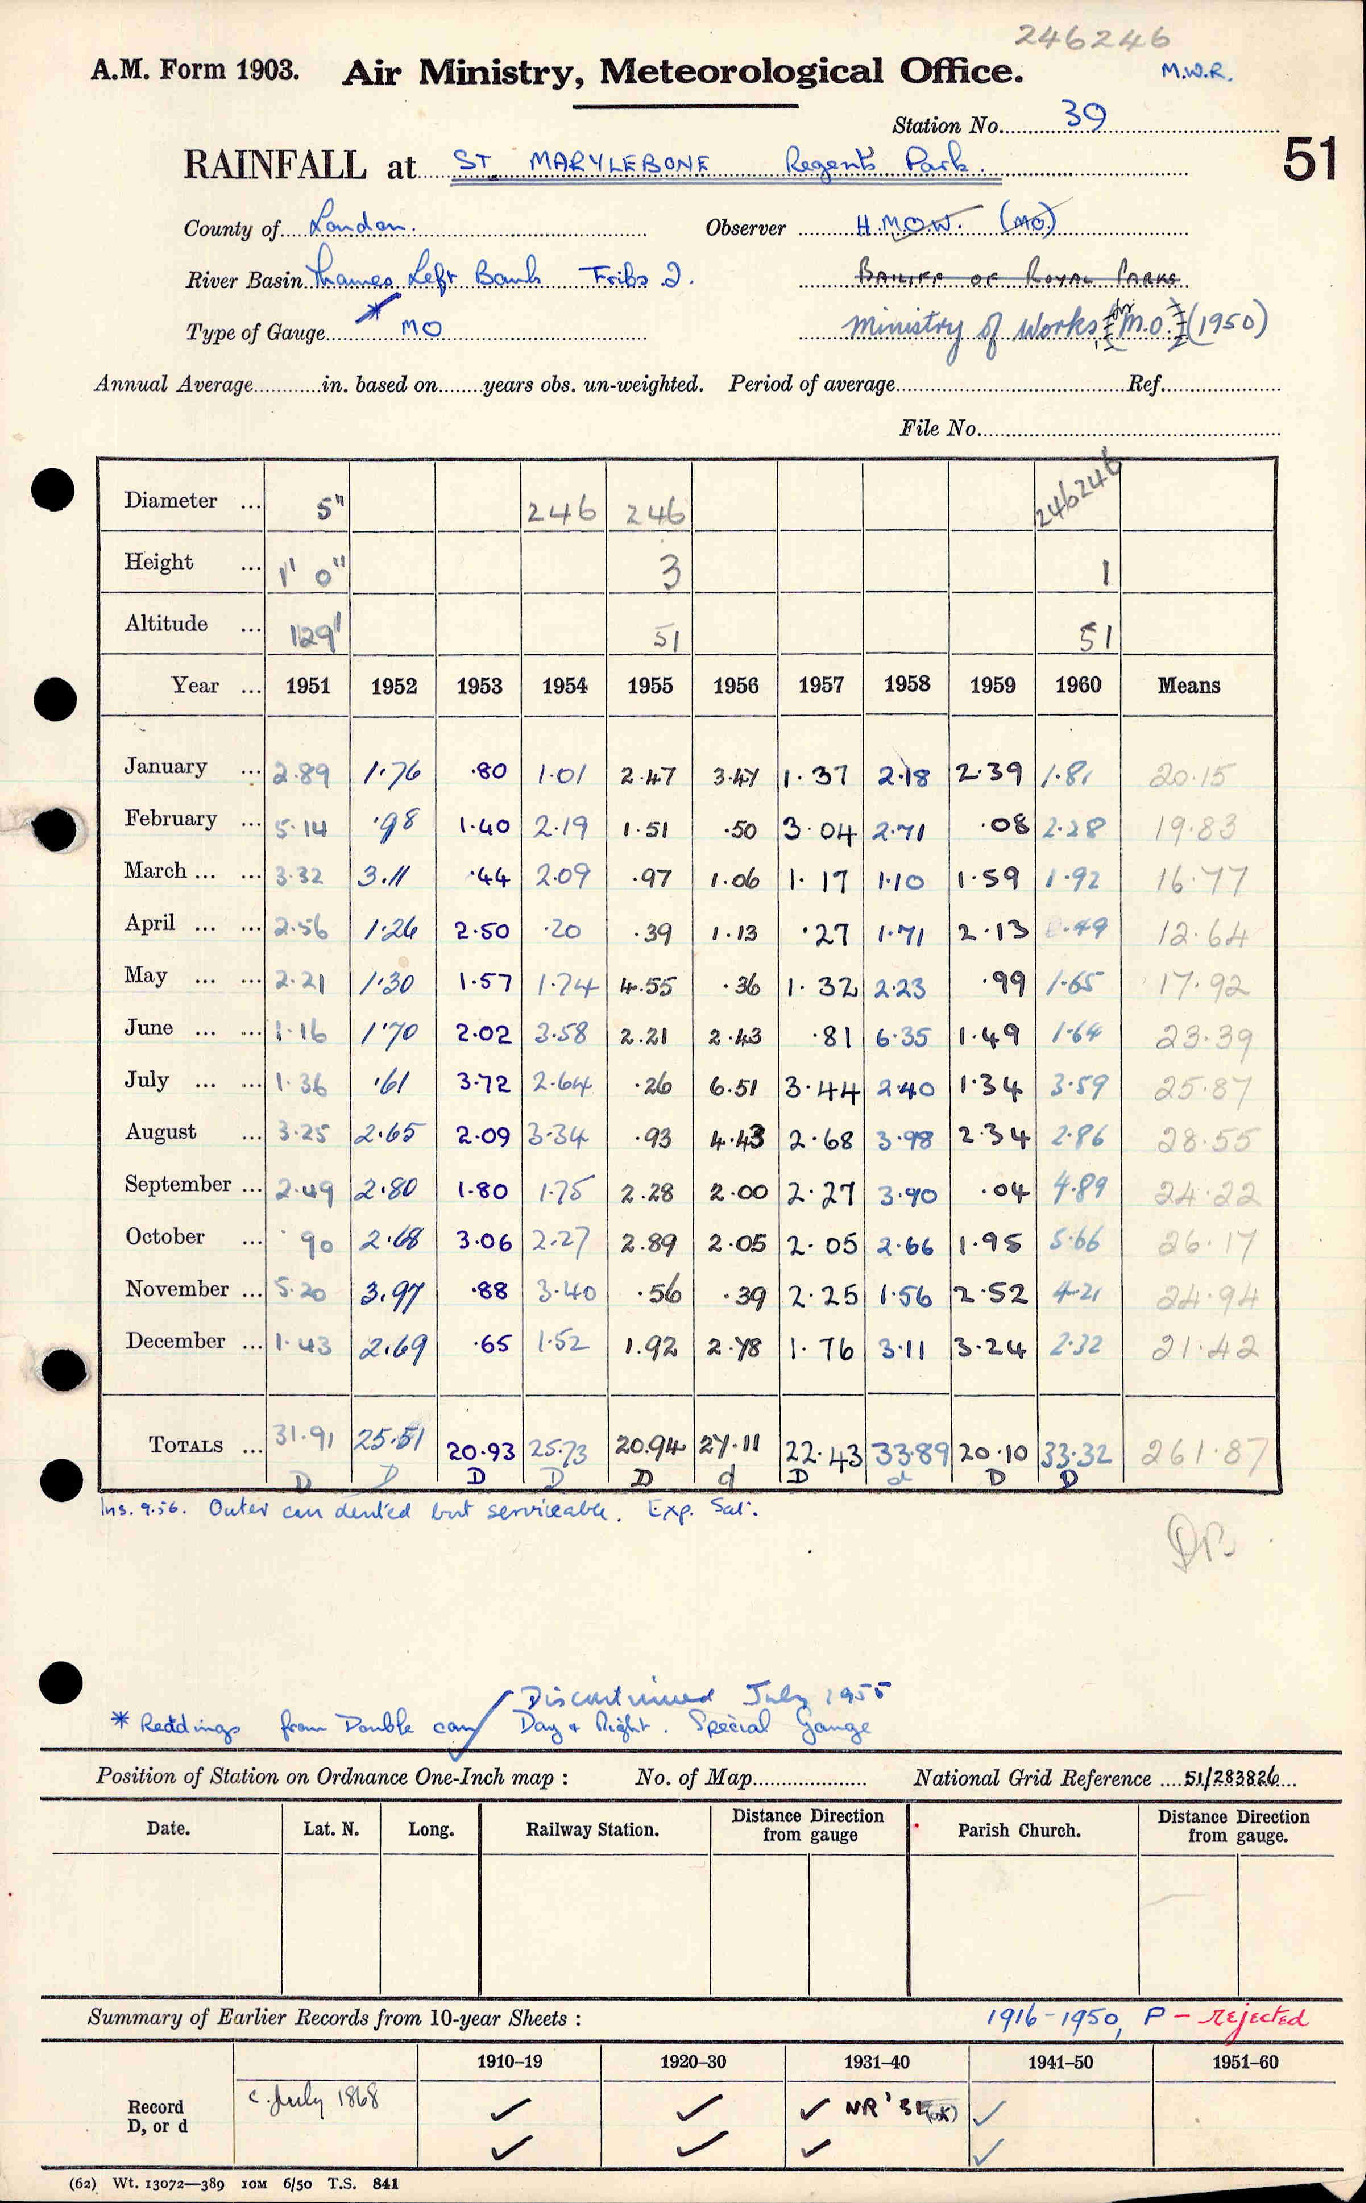 246246
A.M. Form 1903. Air Ministry, Meteorological Office. M.W.R.
Station No. 39
51
RAINFALL at ST. MARYLEBONE Regent's Park.
County of London. Observer H.M.O.W. (MO)
River Basin Thames Left Bank Tribs 2. BAILIFF OF ROYAL PARKS
Type of Gauge * MO Ministry of Works (for M.O.) (1950)
Annual Average in. based on years obs. un-weighted. Period of average Ref.
File No.
Diameter ... 5" 246 246 246246
Height ... 1' 0" 3 1
Altitude ... 129' 51 51
Year ... 1951 1952 1953 1954 1955 1956 1957 1958 1959 1960 Means
January ... 2.89 1.76 .80 1.01 2.47 3.47 1.37 2.18 2.39 1.81 20.15
February ... 5.14 .98 1.40 2.19 1.51 .50 3.04 2.71 .08 2.28 19.83
March ... ... 3.32 3.11 .44 2.09 .97 1.06 1.17 1.10 1.59 1.92 16.77
April ... ... 2.56 1.26 2.50 .20 .39 1.13 .27 1.71 2.13 .49 12.64
May ... ... 2.21 1.30 1.57 1.74 4.55 .36 1.32 2.23 .99 1.65 17.92
June ... ... 1.16 1.70 2.02 3.58 2.21 2.43 .81 6.35 1.49 1.64 23.39
July ... ... 1.36 .61 3.72 2.64 .26 6.51 3.44 2.40 1.34 3.59 25.87
August ... 3.25 2.65 2.09 3.34 .93 4.43 2.68 3.98 2.34 2.86 28.55
September ... 2.49 2.80 1.80 1.75 2.28 2.00 2.27 3.90 .04 4.89 24.22
October ... .90 2.68 3.06 2.27 2.89 2.05 2.05 2.66 1.95 5.66 26.17
November ... 5.20 3.97 .88 3.40 .56 .39 2.25 1.56 2.52 4.21 24.94
December ... 1.43 2.69 .65 1.52 1.92 2.78 1.76 3.11 3.24 2.32 21.42
TOTALS ... 31.91 25.51 20.93 25.73 20.94 27.11 22.43 33.89 20.10 33.32 261.87
D D D D D d D d D D
Ins. 9.56. Outer can dented but serviceable. Exp. Sat.
DB
Discontinued July 1955
* Readings from Double can Day & Night. Special Gauge
Position of Station on Ordnance One-Inch map : No. of Map National Grid Reference 51/283826
Date. Lat. N. Long. Railway Station. Distance Direction from gauge Parish Church. Distance Direction from gauge.
Summary of Earlier Records from 10-year Sheets : 1916-1950, P - rejected
1910–19 1920–30 1931–40 1941–50 1951–60
Record D, or d c. July 1868 ✓ ✓ ✓ NR '31 (OK) ✓
✓ ✓ ✓ ✓
(62) Wt. 13072—389 10M 6/50 T.S. 841